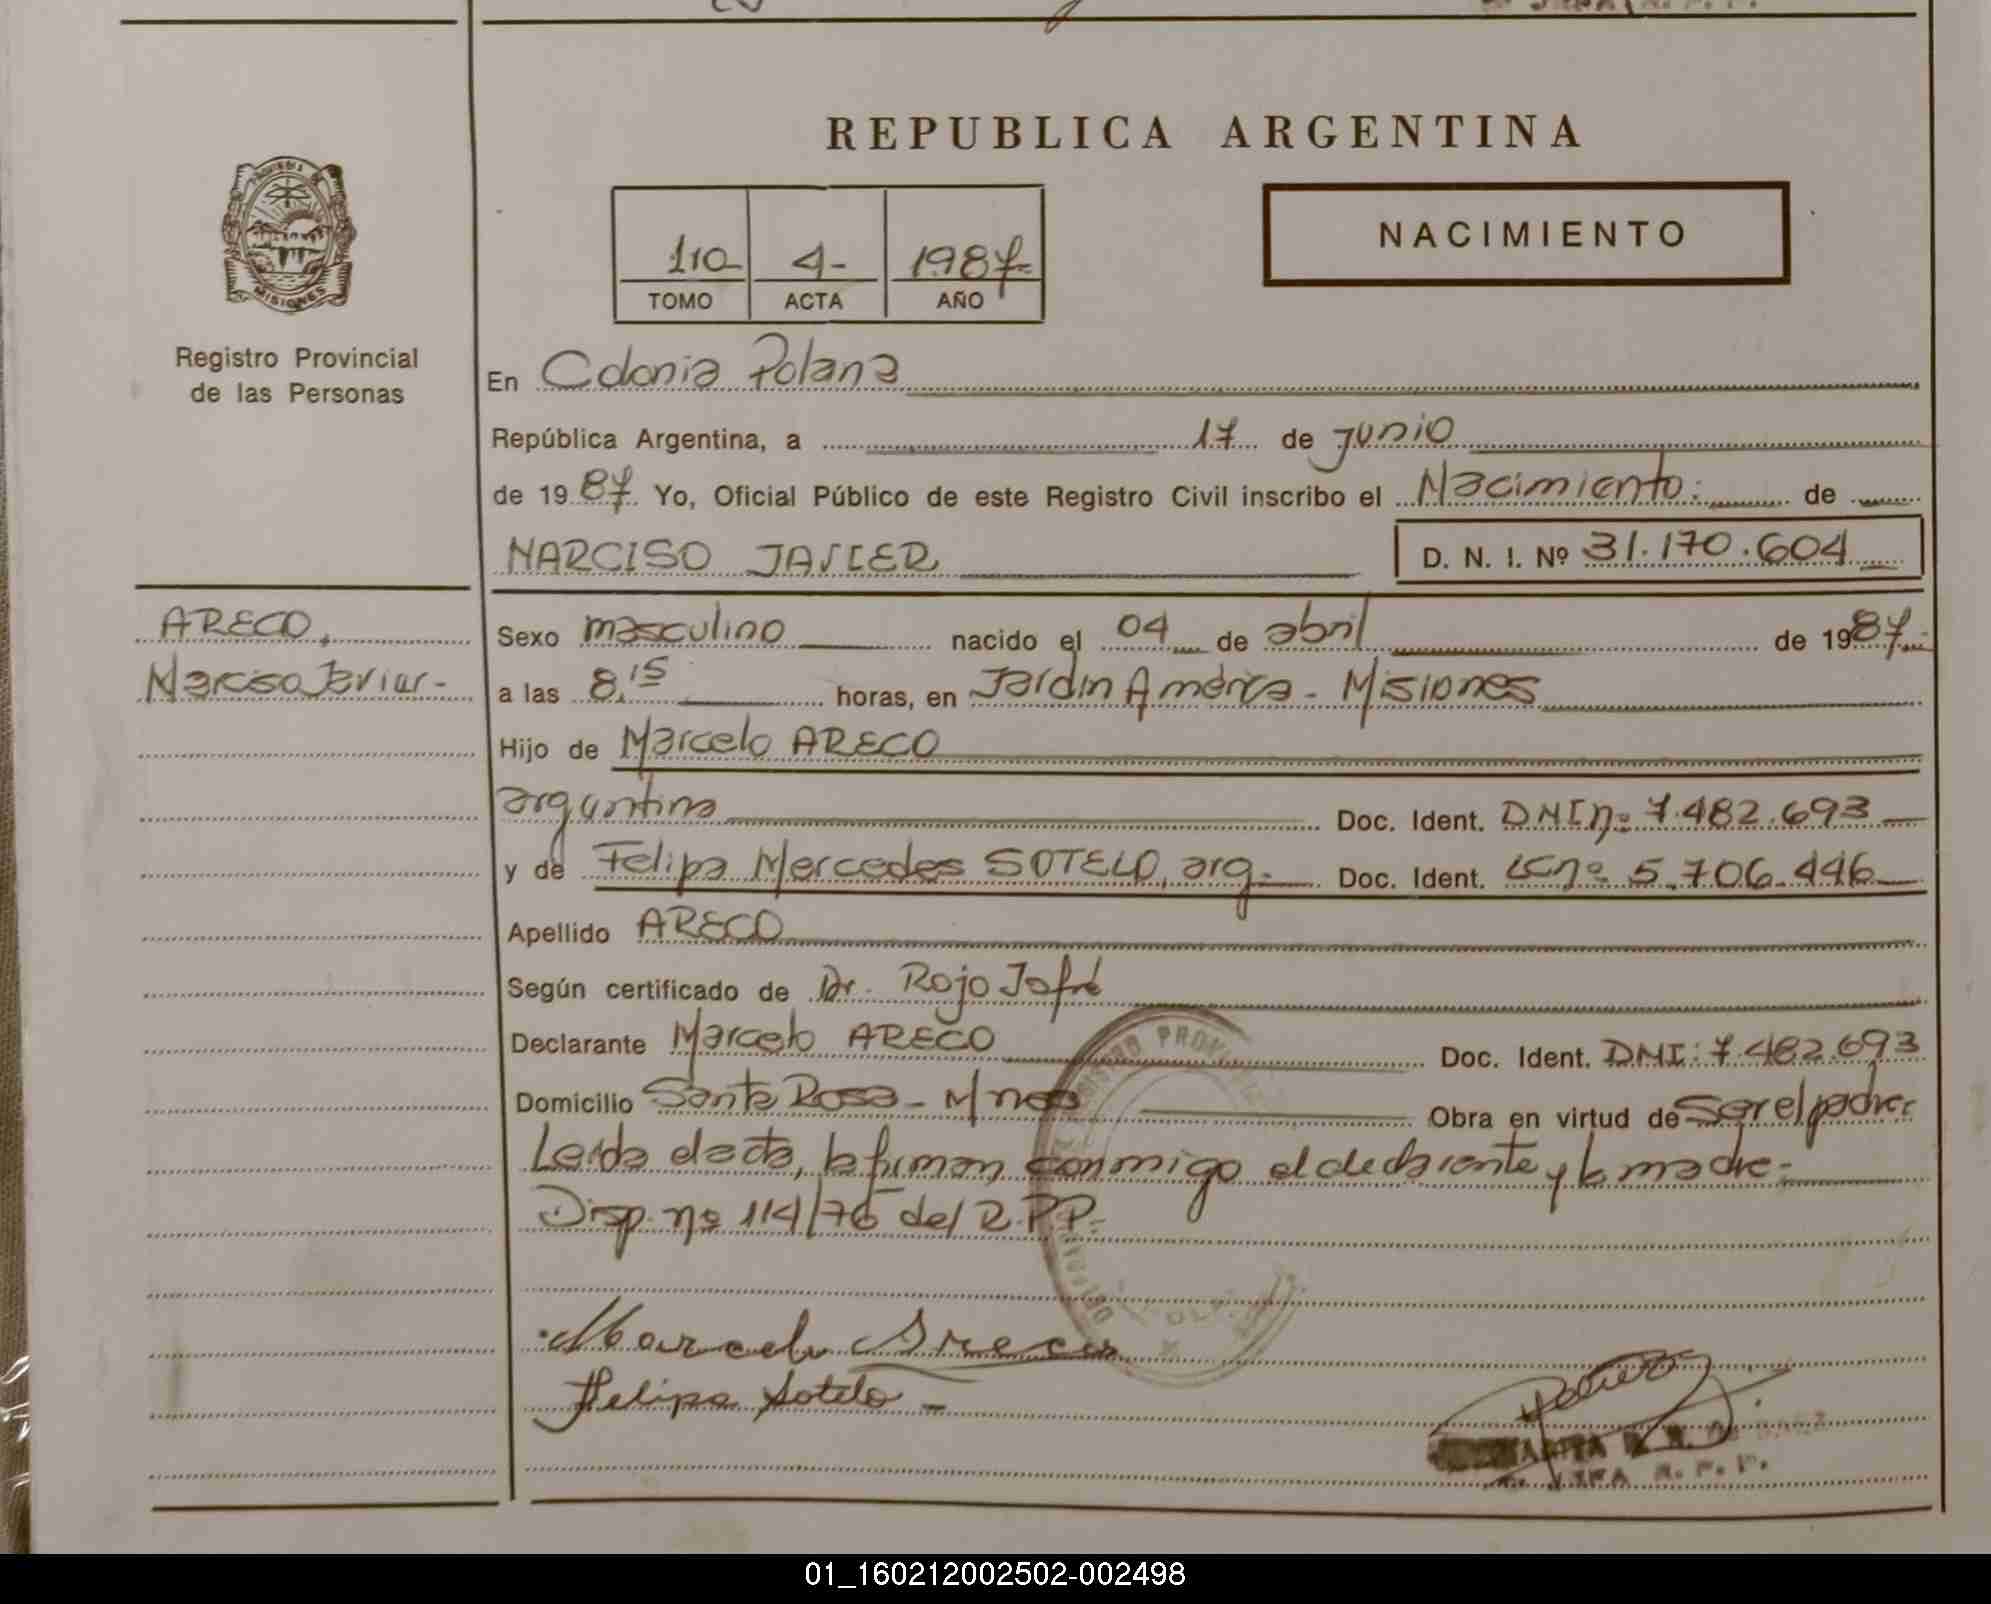 REPUBLICA ARGENTINA
PROVINCIA DE MISIONES
110 4- 1987-
TOMO ACTA AÑO
NACIMIENTO
Registro Provincial
de las Personas
En Colonia Polana
República Argentina, a 17 de junio
de 1987 Yo, Oficial Público de este Registro Civil inscribo el Nacimiento: de
NARCISO JAVIER D. N. I. Nº 31.170.604
ARECO,
Narciso Javier-
Sexo masculino nacido el 04 de abril de 1987
a las 8,15 horas, en Jardin América - Misiones
Hijo de Marcelo ARECO
argentina Doc. Ident. DNI nº 7.482.693
y de Felipa Mercedes SOTELO, arg. Doc. Ident. LC nº 5.706.446
Apellido ARECO
Según certificado de Dr. Rojo Jofré
Declarante Marcelo ARECO Doc. Ident. DNI: 7.482.693
Domicilio Santa Rosa - Mnes Obra en virtud de Ser el padre.
Leida el acta, la firman conmigo el declarante y la madre-
Disp. nº 114/76 del R.P.P.-
Marcelo Areco
Felipa Sotelo -
JEFA R. P. P.
01_160212002502-002498